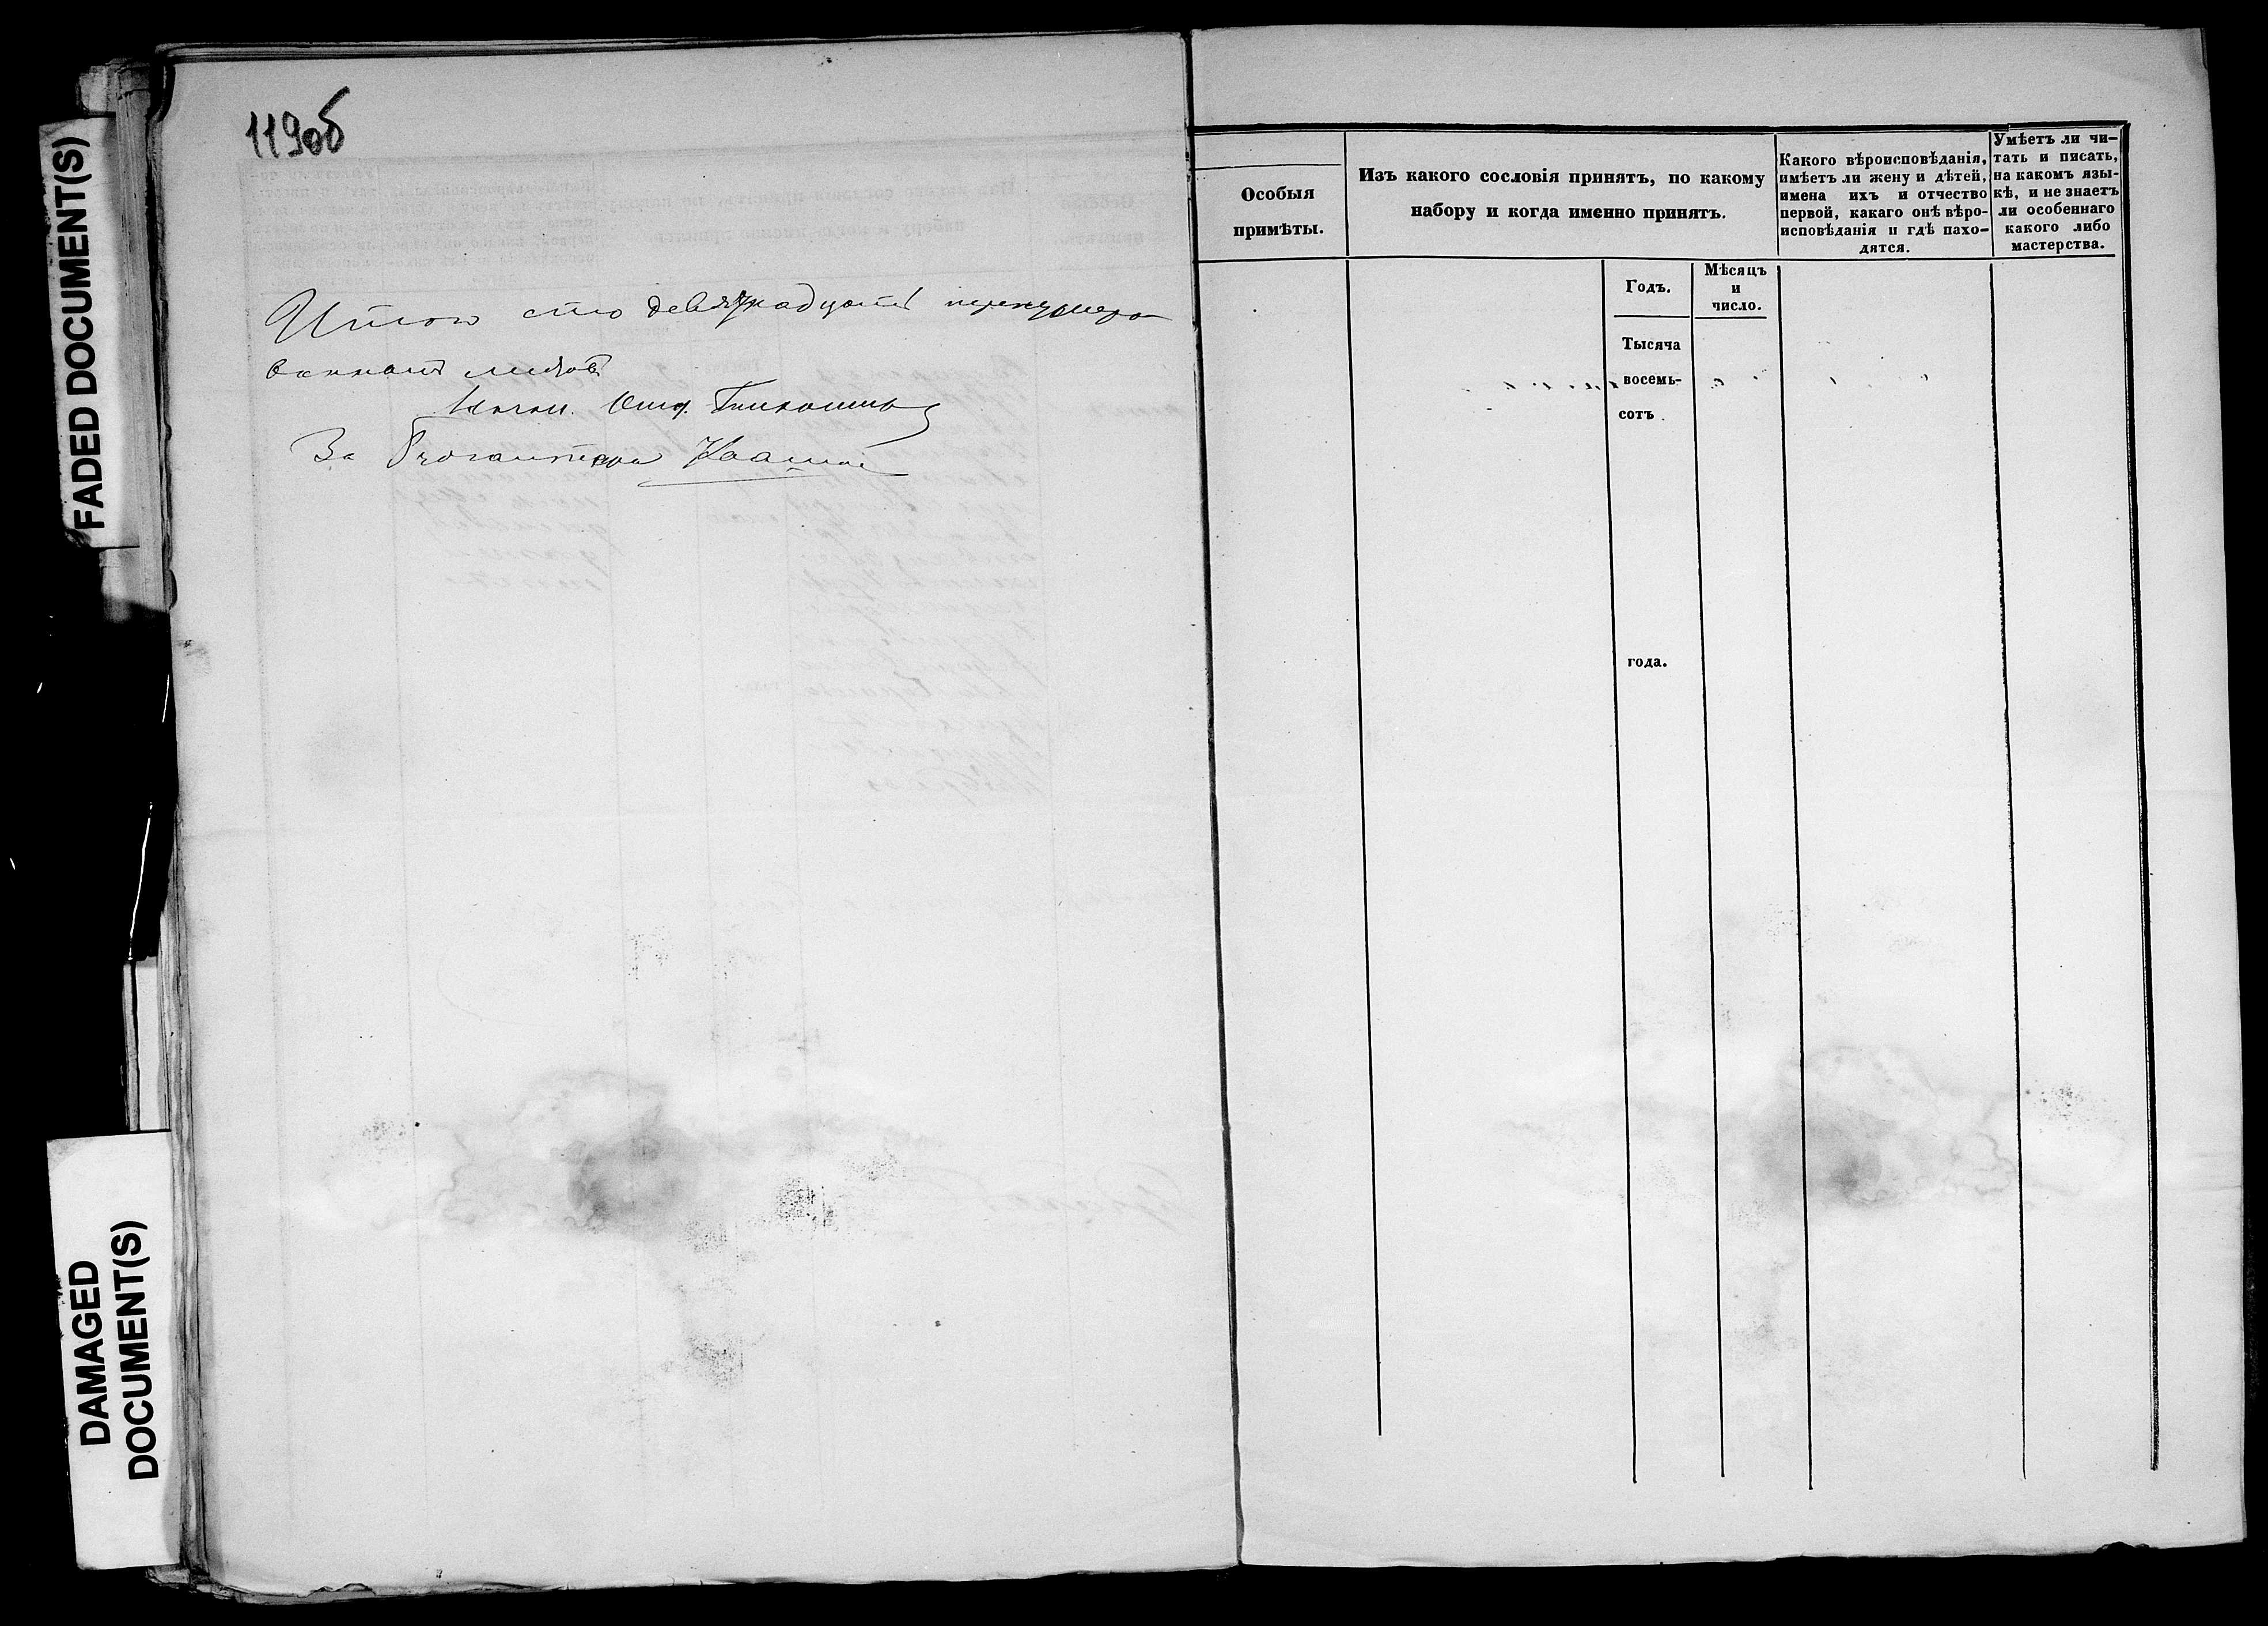 FADED DOCUMENT(S)
DAMAGED
DOCUMENT(S)
119об
Итого сто девятнадцать перенумеро
ванныхъ листовъ
За
Особыя
примѣты.
Изъ какого сословія принятъ, по какому
набору и когда именно принятъ.
Какого вѣроисповѣданія,
имѣетъ ли жену и дѣтей,
имена ихъ и отчество
первой, какаго онѣ вѣро-
исповѣданія и гдѣ нахо-
дятся.
Умѣетъ ли чи-
тать и писать,
на какомъ язы-
кѣ, и не знаетъ
ли особеннаго
какого либо
мастерства.
Годъ.
Мѣсяцъ
и
число.
Тысяча
восемь-
сотъ
года.